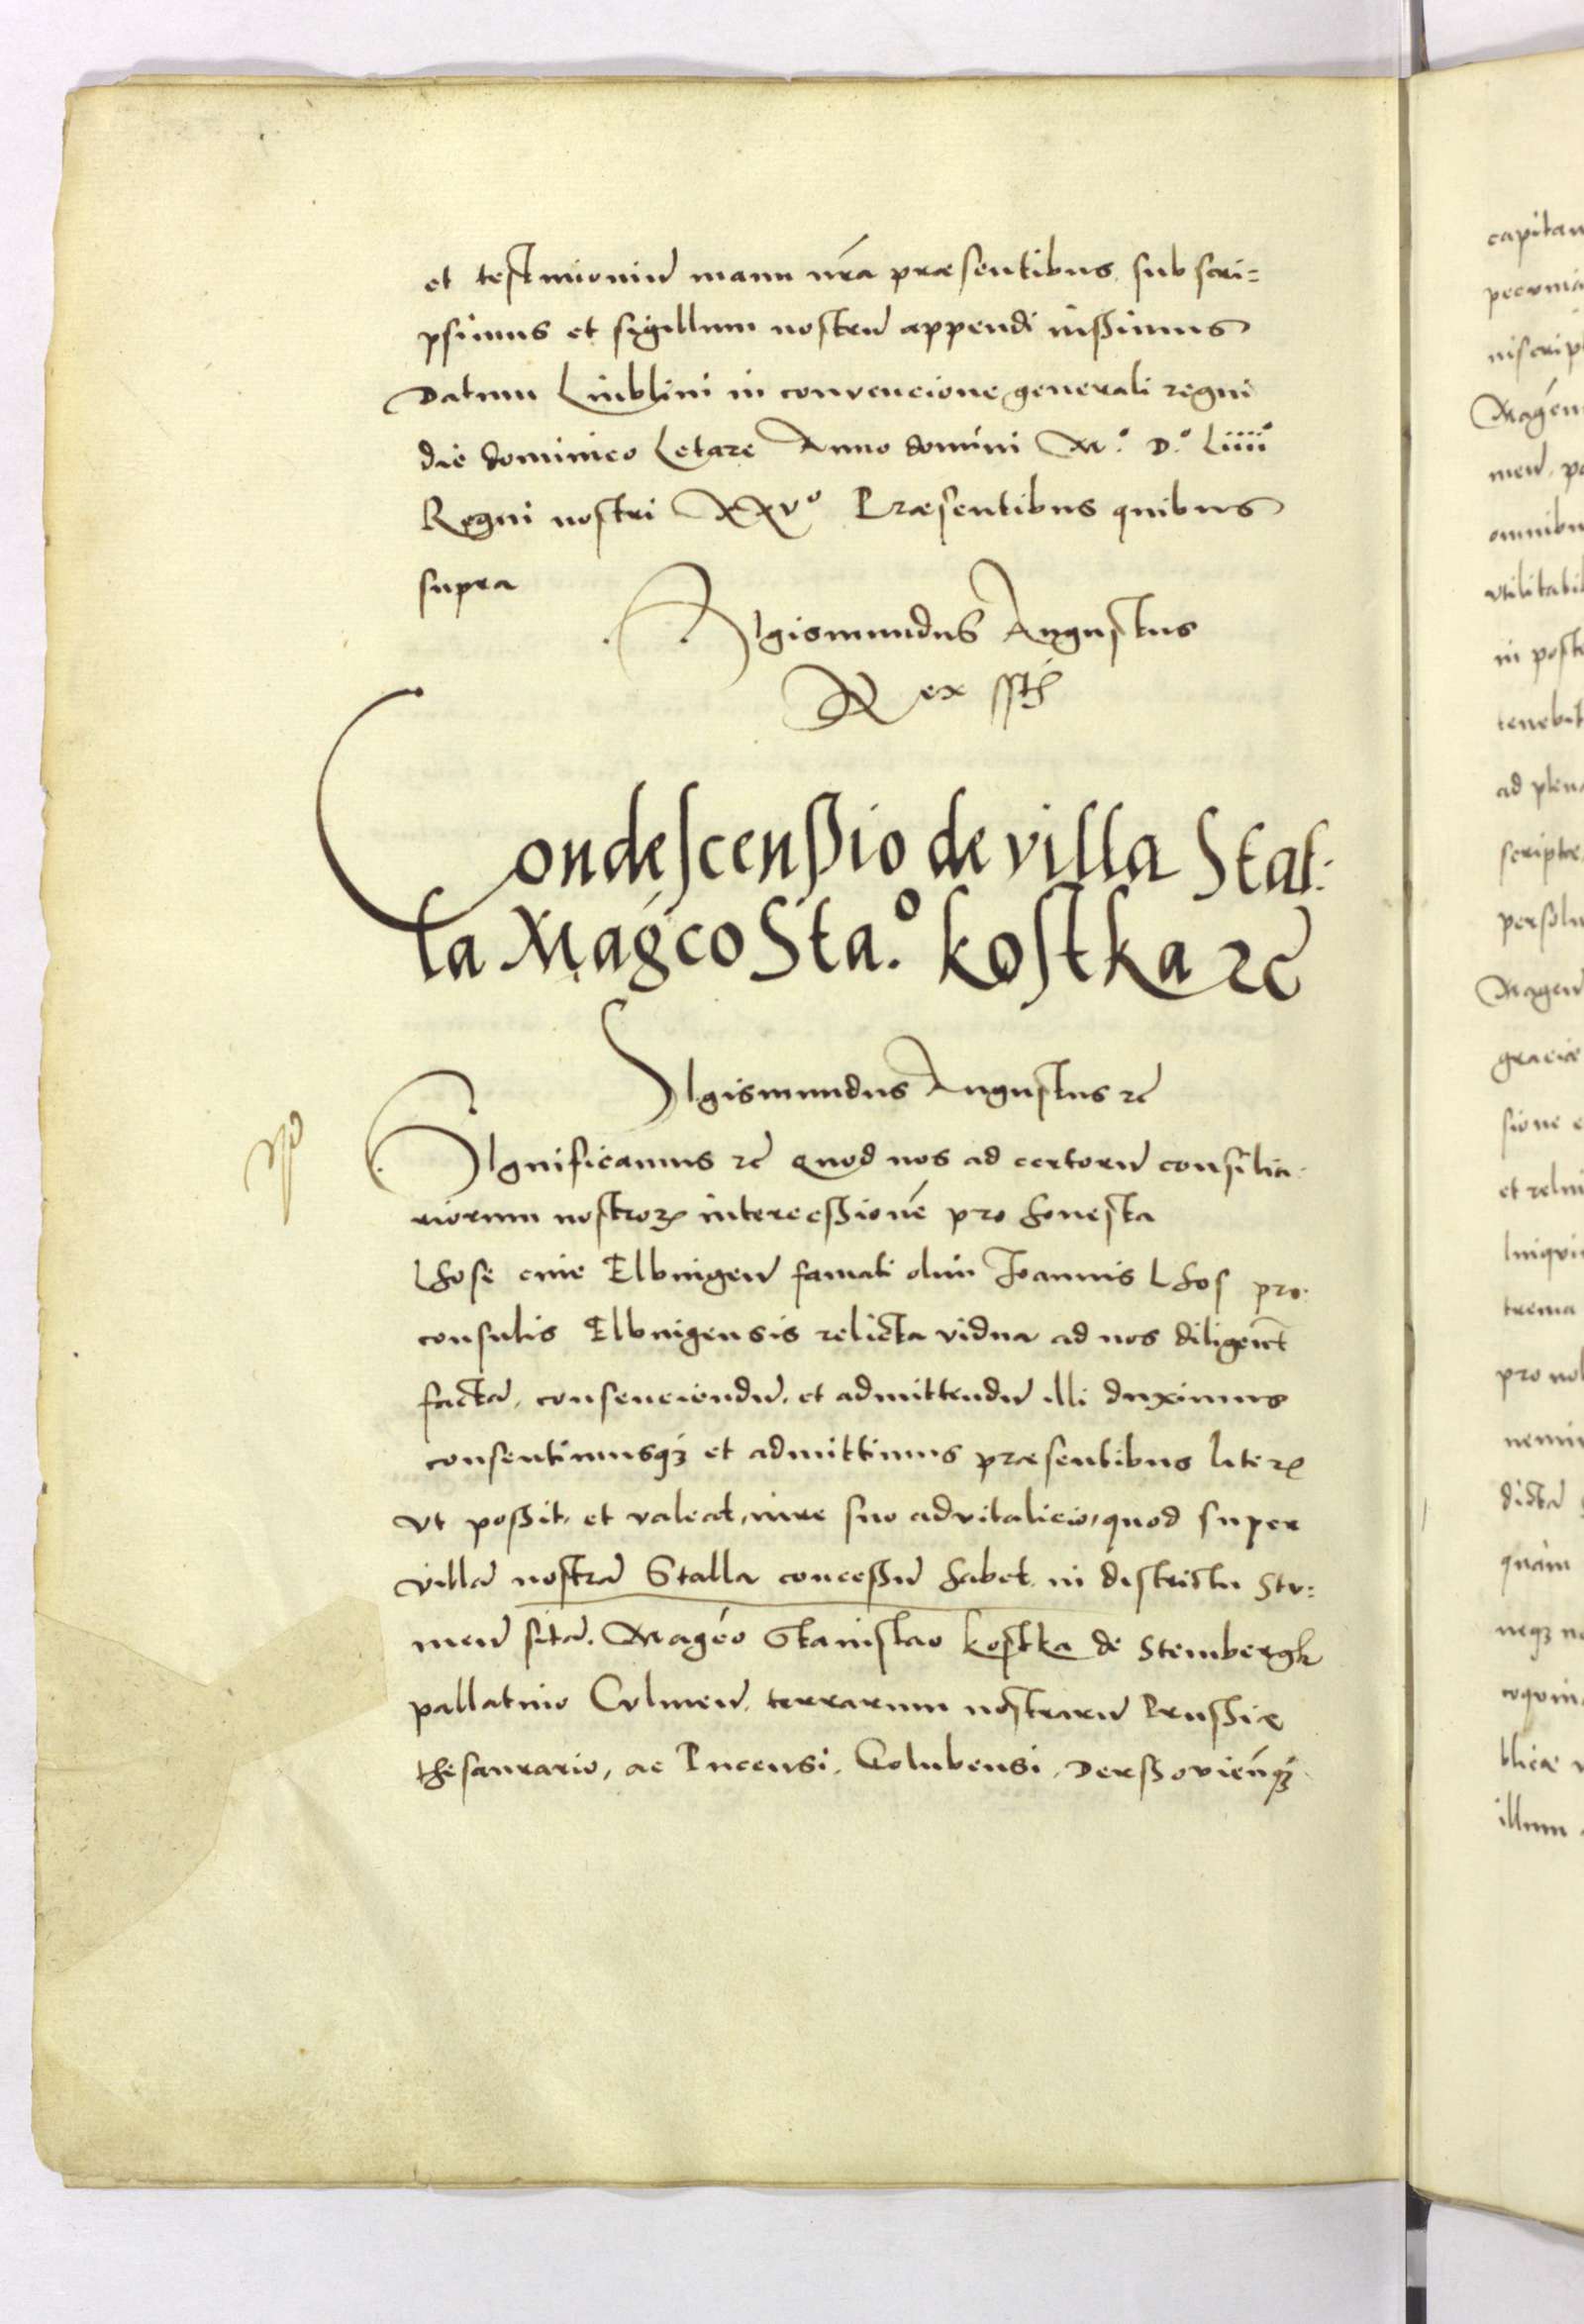 et testimoniu manu nra præsentibus subscri=
psimus et sigillum nostru appendi iussimus
Datum Lublini in convencione generali regni
die dominico Letare Anno domini M.° D.° Liiii°
Regni nostri XXv° Præsentibus quibus
supra
Sigismundus Augustus
Rex sst
Condescenssio de villa Stal:
la Magco Sta.° kostka rc
Sigismundus Augustus rc
Significamus rc quod nos ad certoru consilia
riorum nostror intercessione pro honesta
cive Elbingen famati olim Joannis pro
consulis Elbingensis relicta vidua ad nos diligent
facta, consenciendu, et admittendu illi duximus
consentimusq et admittimus præsentibus liter
vt possit, et valeat, iure suo advitalicio, quod super
villa nostra Stalla concessu habet in districtu Stu:
men sita. Magco Stanislao kostka de Stembergk
pallatino Culmen. terrarum nostraru Prussiæ
thesaurario, ac Pucensi, Golubensi, Derssovienq
capitan
pecunia
niscript
Magcu
omnibu
vtilitati
in poste
tenebit
ad plen
scriptæ
persolu
graciæ
sione
et relin
pro no
dicta
quam
blicæ
illum